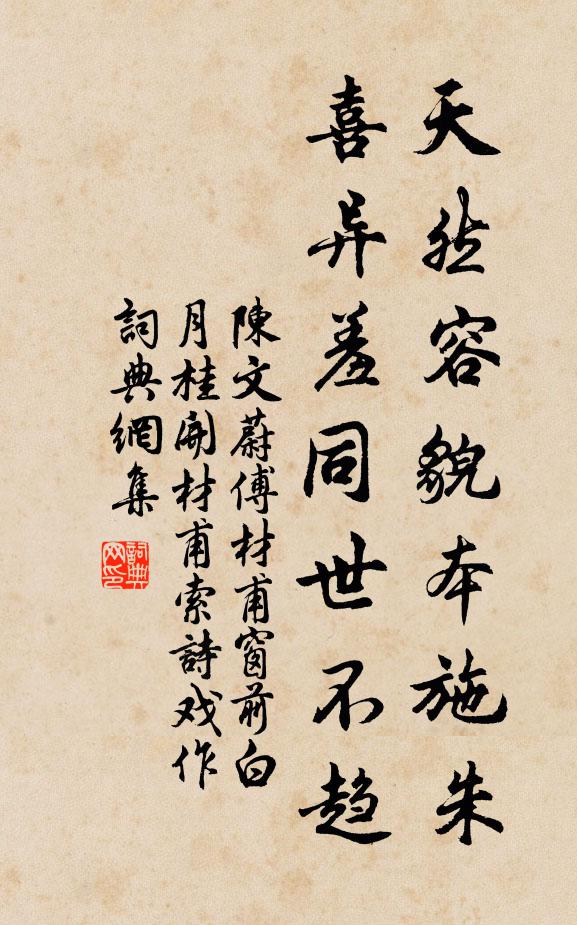 天然容貌本施朱
喜异羞同世不趋
陳文蔚傅材甫窗前白
月桂開材甫索詩戏作
詞典網集
詞典网印